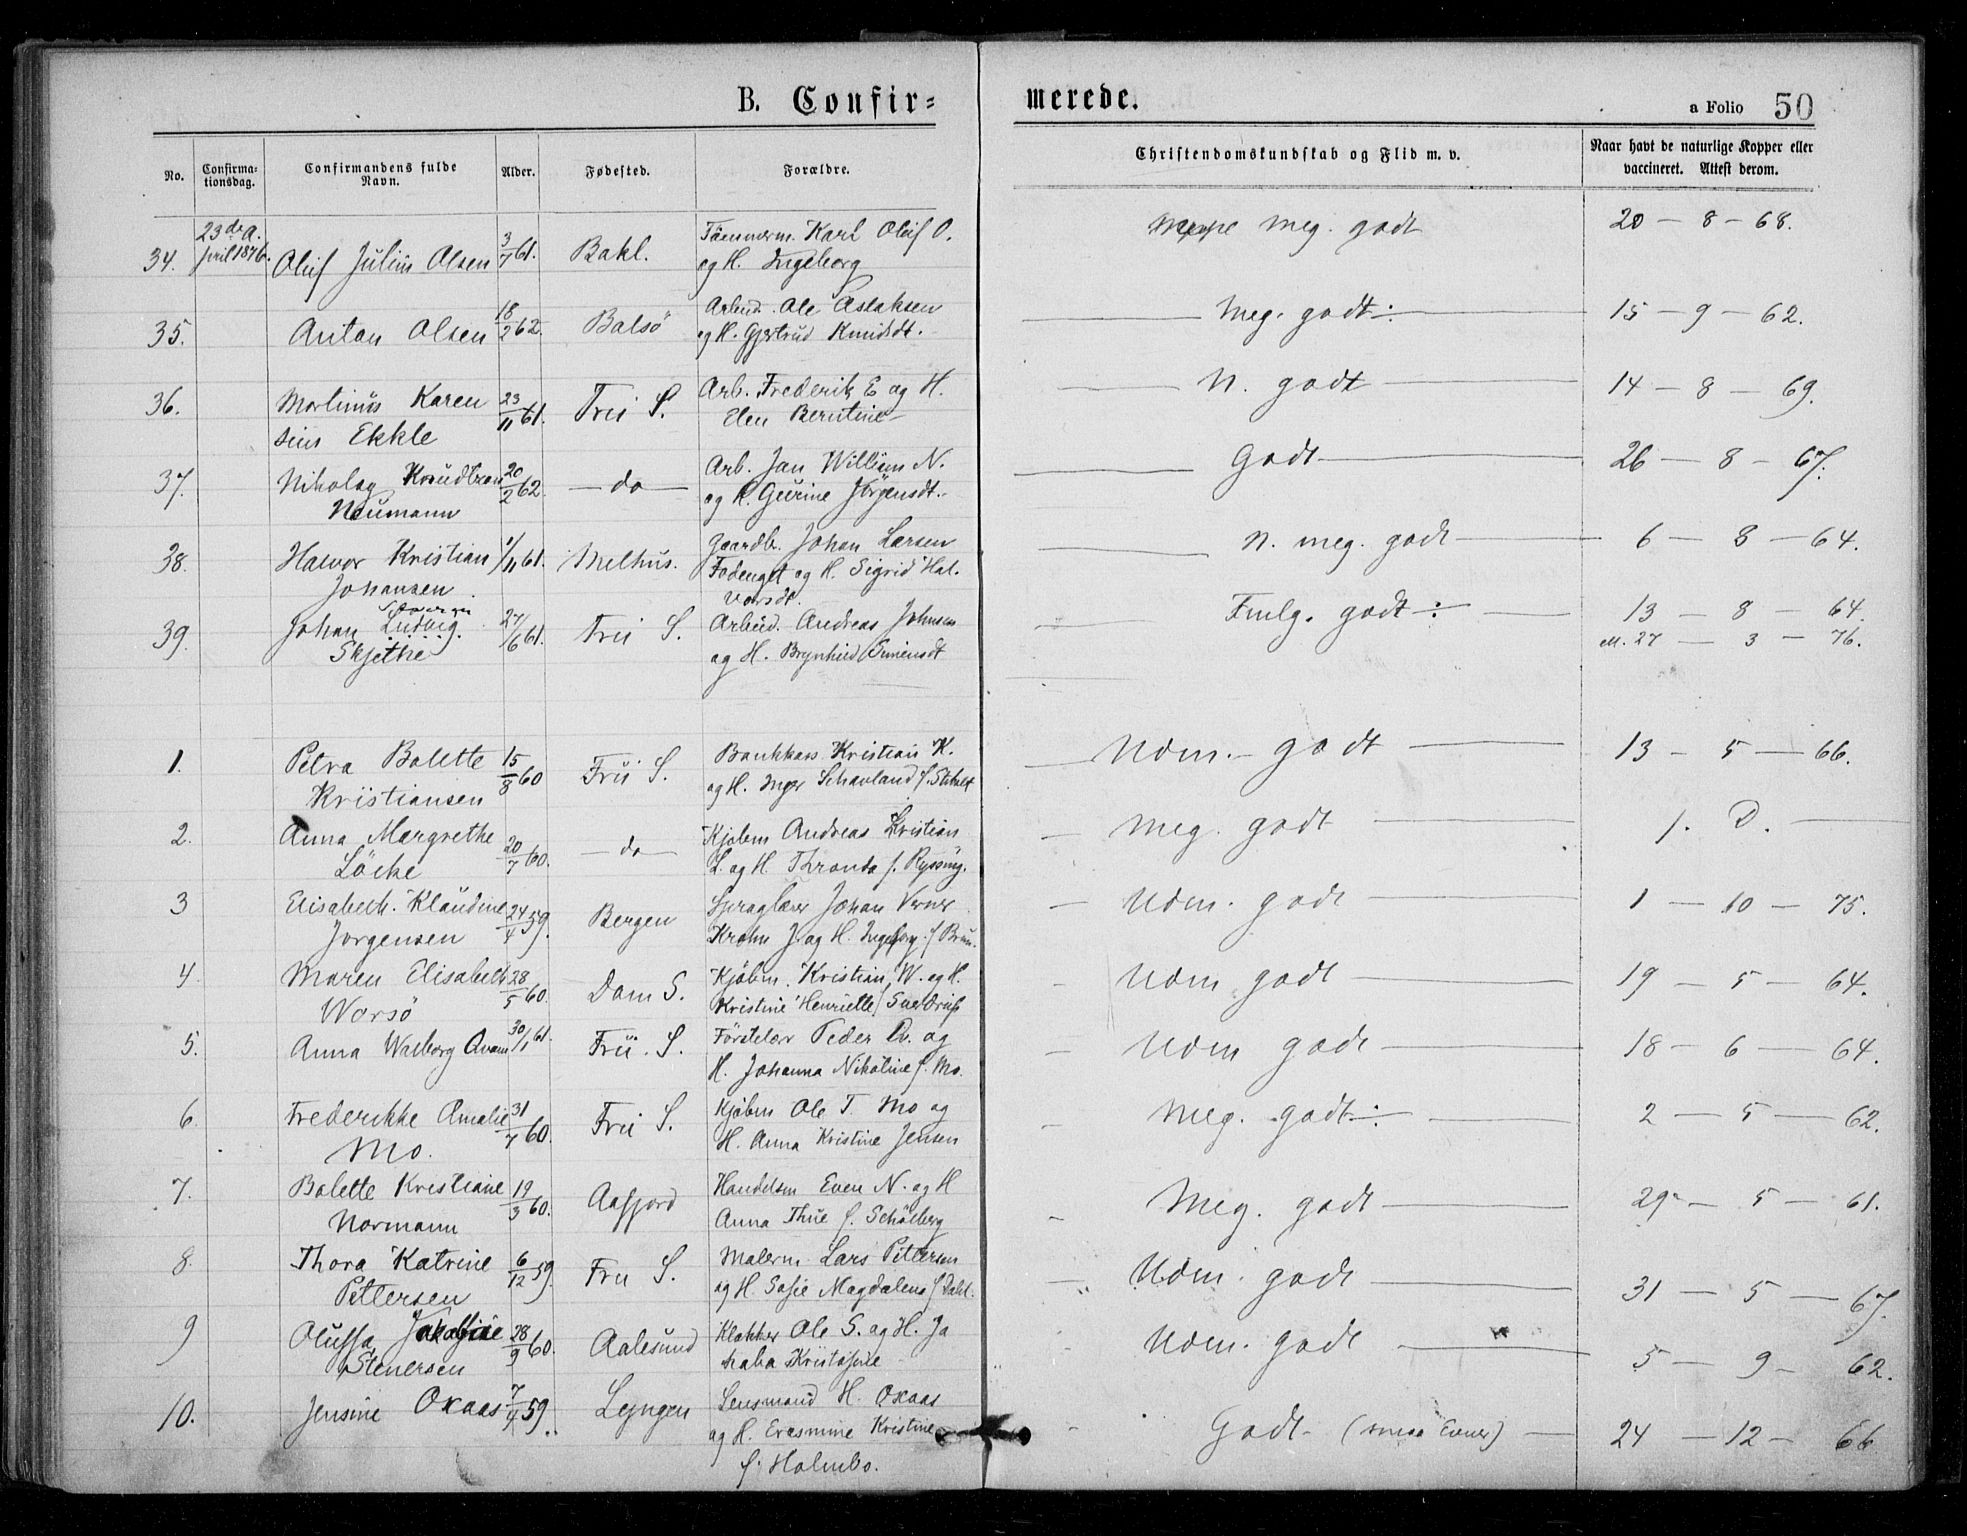 B. Confir=
merede.
a Folio 50
No.
Confirma-
tionsdag.
Confirmandens fulde
Navn.
Alder.
Fødested.
Forældre.
Christendomskundskab og Flid m. v.
Naar havt de naturlige Kopper eller
vaccineret. Attest derom.
23de A.
pril 1876.
34. Oluf Julius Olsen 3/7 61. Bakl.
Tömmerm. Karl Oluf O.
og H. Ingeborg
meg. godt
20 - 8 - 68.
35. Anton Olsen 18/2 62. Balsö
Arbeid. Ole Aslaksen
og H. Gjertrud Knudsdt.
Meg. godt ÷
15 - 9 - 62.
36. Martinus Karen
sius Ekkle 23/11 61. Frü S.
Arb. Frederik E og H.
Elen Berntine
N. godt
14 - 8 - 69.
37. Nikolay Knudtzon
Neumann 20/2 62. - do -
Arb. Jan William N.
og H. Gurine Jörgensdt.
Godt
26 - 8 - 67.
38. Halvor Kristian
Johansen 1/11 61. Melhus.
Gaardb. Johan Larsen
og H. Sigrid Hal.
vorsdt.
N. meg. godt
6 - 8 - 64.
39. Johan Ludvig
Skjethe 27/6 61. Frü S.
Arbeid. Andreas Johnsen
og H. Brynhild Simensdt
Tmlg. godt ÷
13 - 8 - 64.
27 - 3 - 76.
1. Petra Bolette
Kristiansen 15/8 60 Frü S.
Bankkass Kristian K.
og H. Inger Schavland f.
Udm. godt
13 - 5 - 66.
2. Anna Margrethe
Löcke 20/7 60. - do -
Kjöbm Andreas Kristian
L. og H. Thronda f. Ryssing.
Meg. godt
1. D.
3 Elisabeth Klaudine
Jörgensen 24/4 59. Bergen
Spraglærer Johan Verner
Krohn J. og H. Ingeborg f. Brun.
Udm. godt
1 - 10 - 75.
4. Maren Elisabeth
Worsö 28/5 60. Dom S.
Kjöbm. Kristian W. og H.
Kristine Henriette f. Sverdrup
Udm godt
19 - 5 - 64.
5. Anna Walborg Qvam 30/1 61. Frü. S.
Förstelær Peder Qv. og
H. Johanna Nikoline f. Mo.
Udm godt
18 - 6 - 64.
6. Frederikke Amalie
Mo. 31/7 60. Frü S.
Kjöbm Ole T. Mo og
H. Anna Kristine Jensen
Meg. godt ÷
2 - 5 - 62.
7. Bolette Kristiane
Normann 19/3 60. Aafjord
Handelsm Even N. og H
Anna Thue f. Schölberg
Meg. godt
29 - 5 - 61.
8. Thora Katrine
Pettersen 6/12 59. Fru S.
Malerm Lars Pettersen
og H. Sofie Magdalena f Dahl.
Udm. godt
31 - 5 - 67.
9
Stenersen 28/9 60. Aalesund
Klokker Ole S. og H. Ja
koba Kristofine
Udm. godt
5 - 9 - 62.
10. Jensine Oxaas 7/4 59. Lyngen
Lensmand H. Oxaas
og H. Erasmine Kristine
f. Holmbo.
Godt - (smaa Evner)
24 - 12 - 66